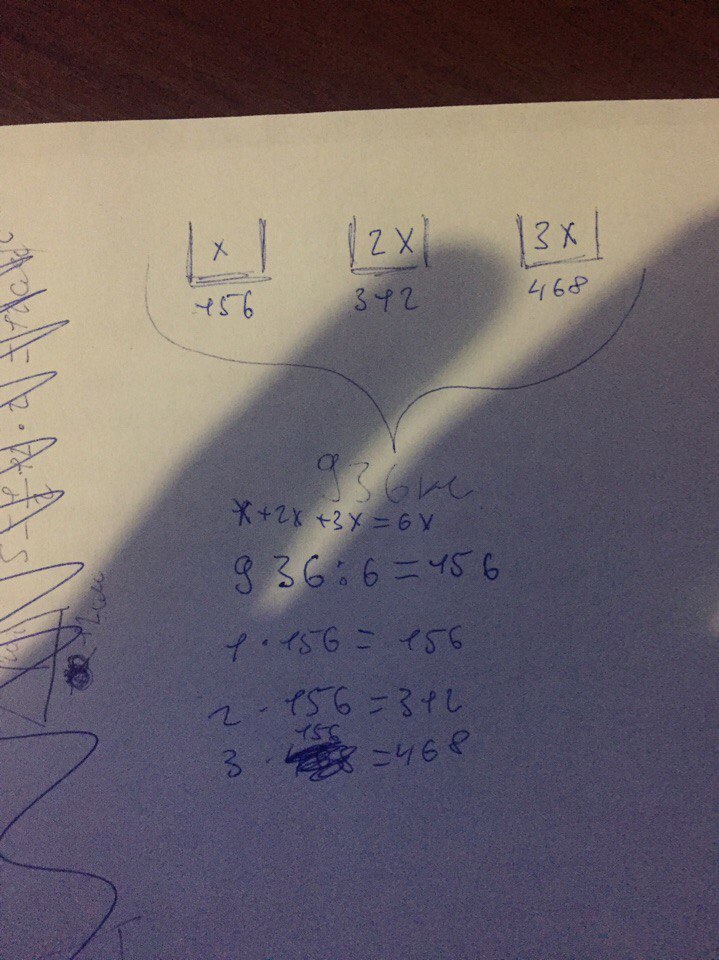 x 2x 3x
156 312 468
936
x+2x+3x=6x
936:6=156
1·156=156
2·156=312
3·156=468